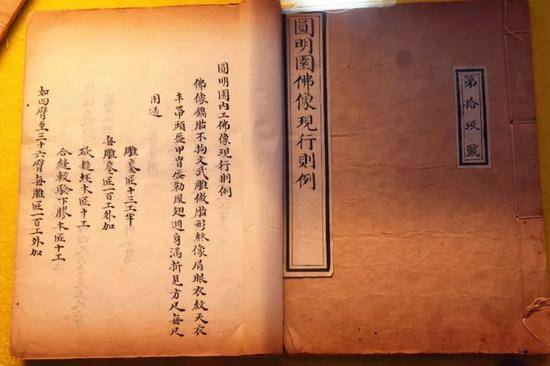 第拾玖號
圓明園佛像現行則例
圓明園內工佛像現行則例
佛像鐫胎不拘文武雕做胎形終像眉眼衣紋天衣
帶頭盔甲胄勒鳳翅週身滿折見方尺每尺
用
雕鑾匠十三工半
每雕鑾匠一百工外加
砍麤坯木匠十工
合縫較驗下膠木匠十工
如四臂至三十六臂每雕匠一百工外加